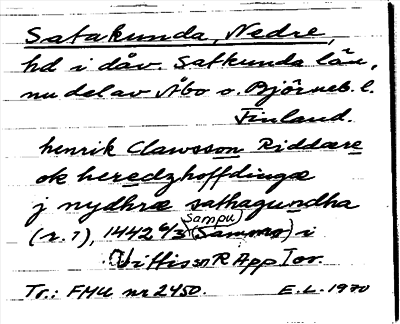 Satakunda, Nedre,
hd i dåv. Satkunda län,
nu del av Åbo o. Björneb. l.
Finland.
henrik Clawsson Riddære
ok heredzhoffdingæ
j nydhræ sathagundha
Sampu
(r. 7), 1442 6/3 (Sammo) i
Vittis sn R App Tor.
Tr.: FMU nr 2450. E.L. 1970